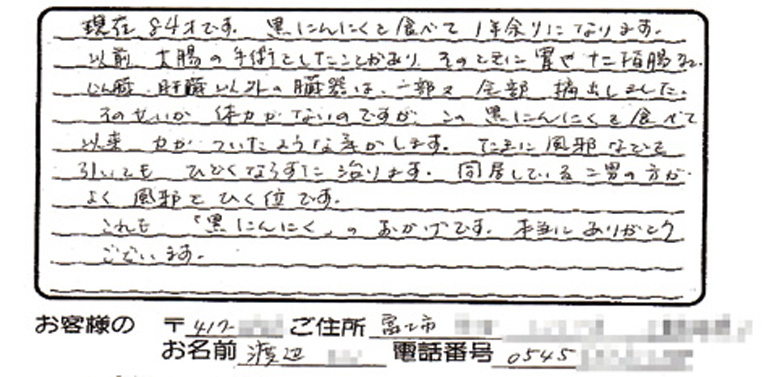 現在84才です。黒にんにくを食べて1年余りになります。
以前、大腸の手術をしたことがあり、そのときに胃や十二指腸など、
心臓、肝臓以外の臓器は、一部又全部摘出しました。
そのせいか体力がないのですが、この黒にんにくを食べて
以来、力がついたような気がします。たまに風邪などを
引いても、ひどくならずに治ります。同居している二男の方が
よく風邪をひく位です。
これも「黒にんにく」のおかげです。本当にありがとう
ございます。
お客様の 〒417- ご住所 富士市
お名前 渡辺 電話番号 0545